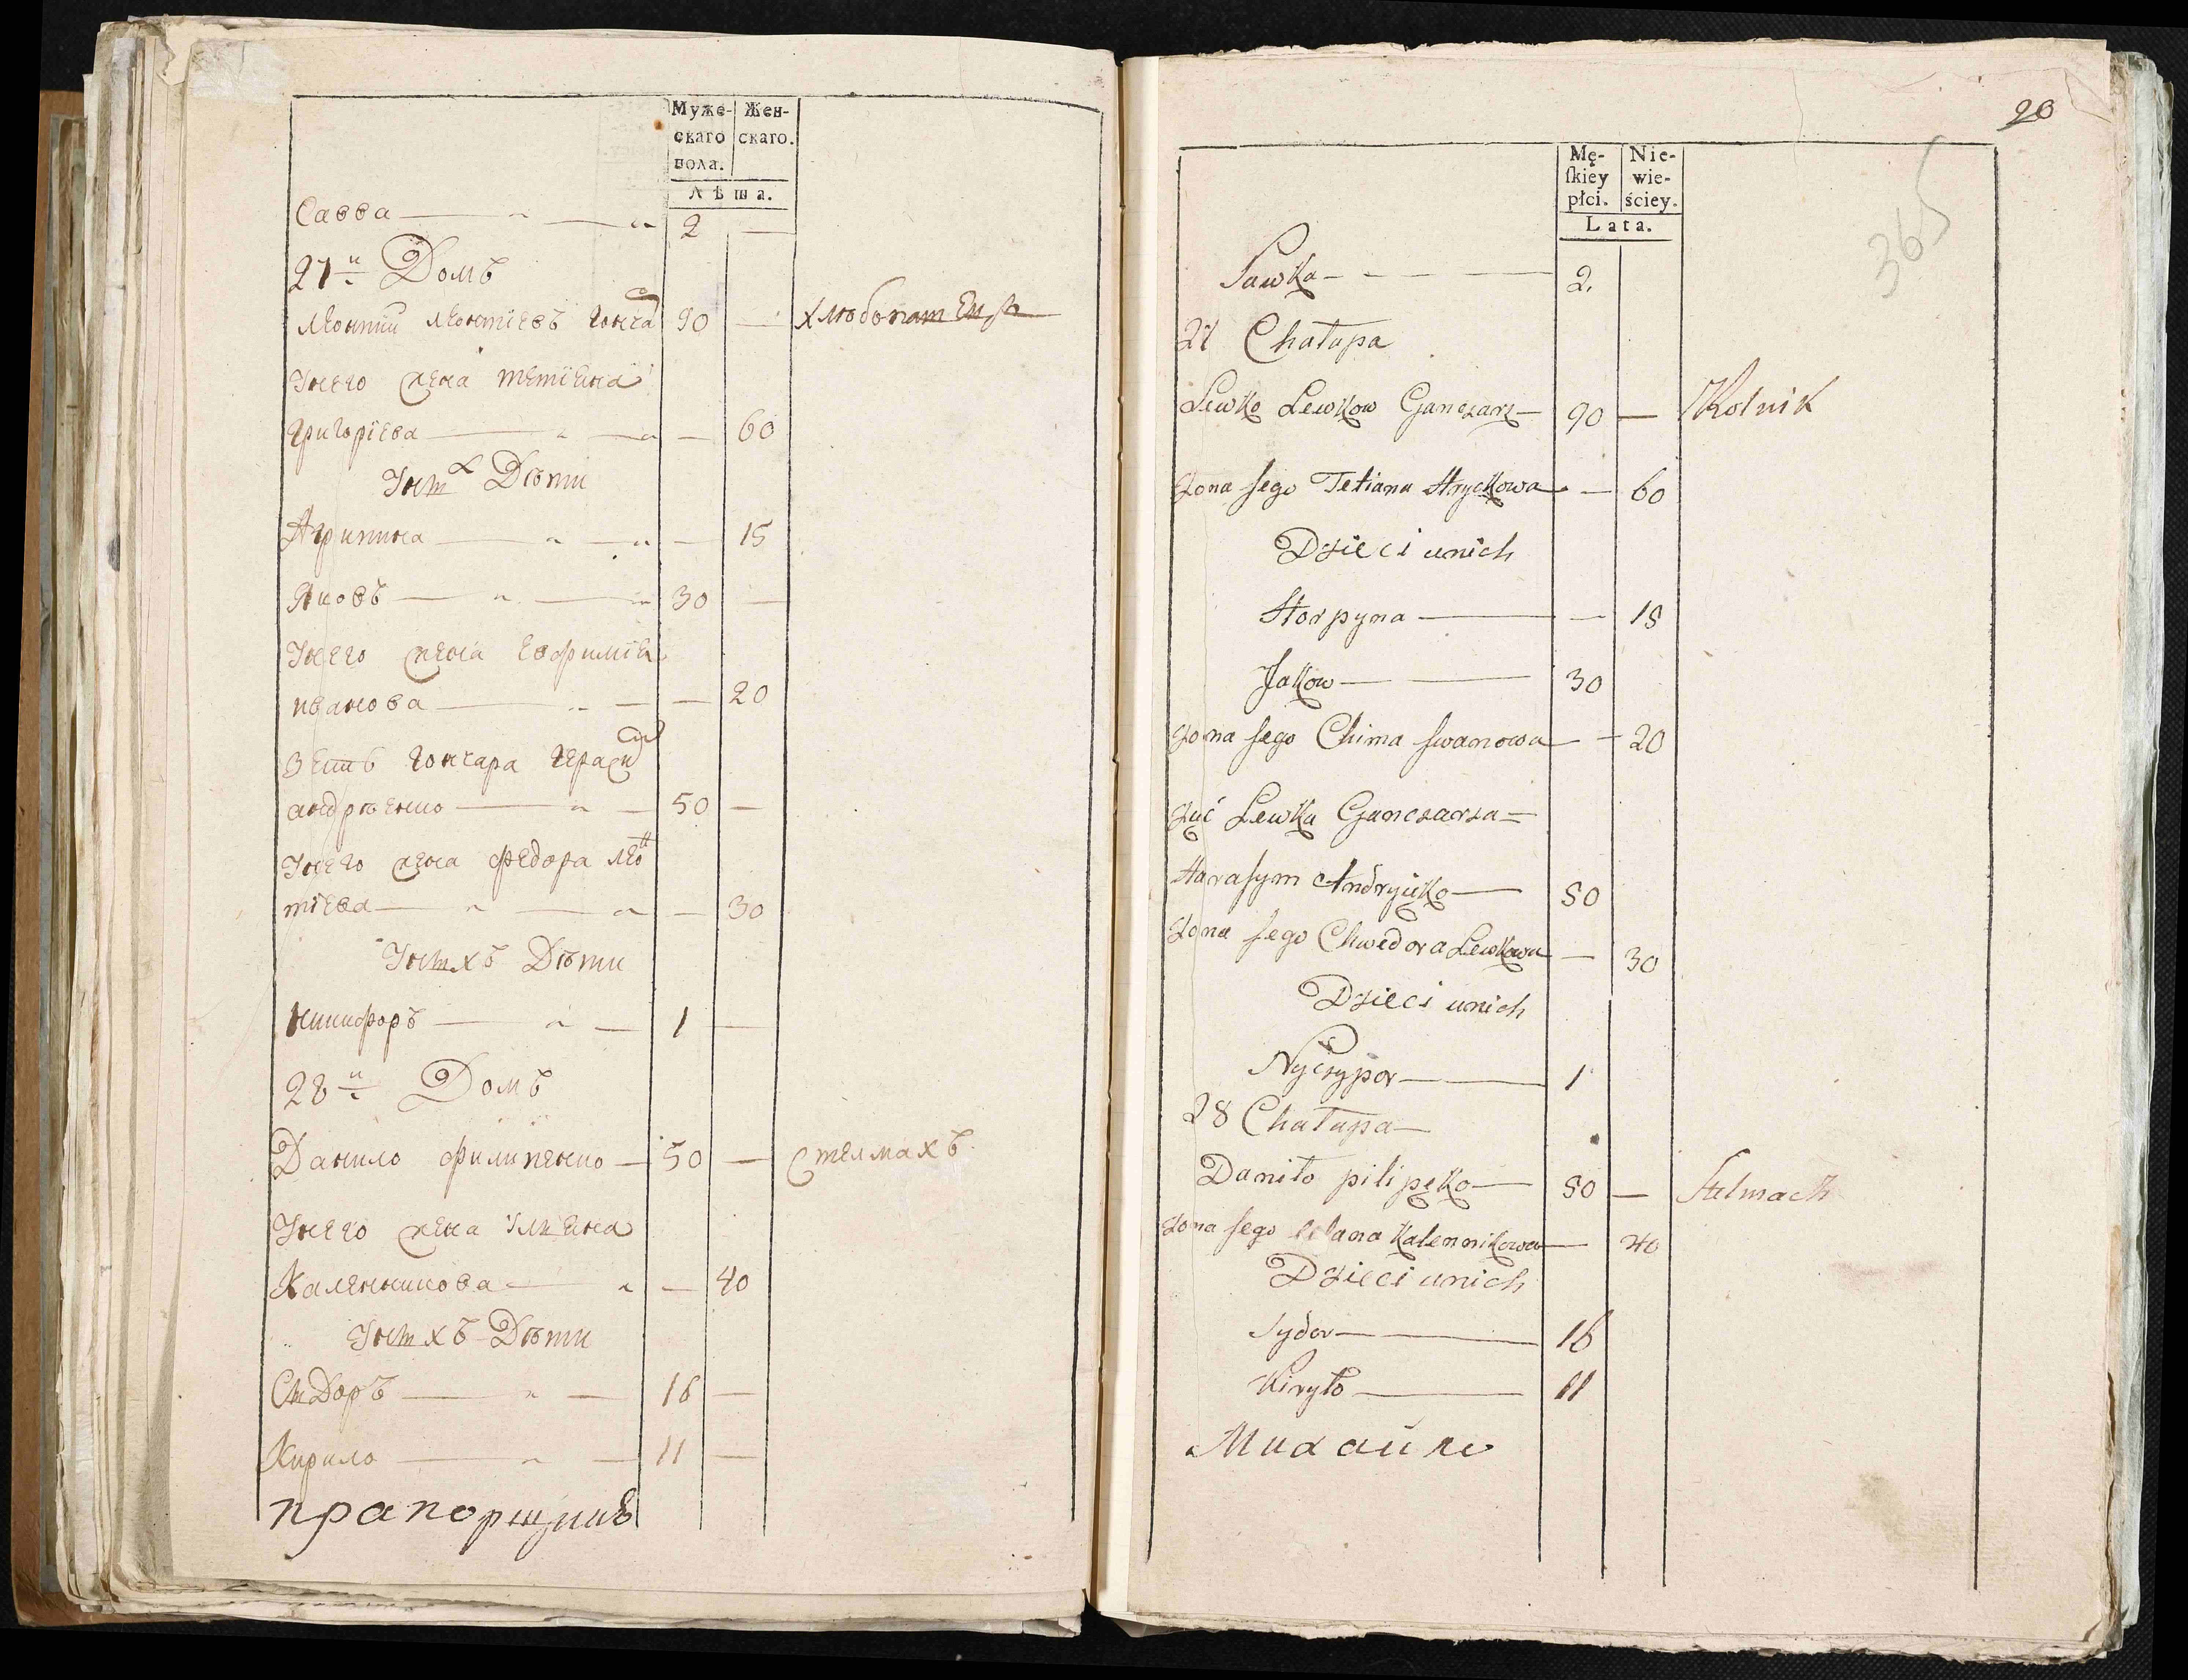 Муже-
скаго
пола.
Жен-
скаго.
Лѣта.
Савва — 2 —
27й Домъ
Леонтий Леонтіевъ Гончар 90 — хлебопашецъ
Унего жена Тетіяна
Григоріева — 60
Унихъ Дѣти
Агрипина — 15
Яковъ — 30 —
Унего жена Евфимія
Иванова — 20
Зять Гончара Герасим
андрѣенко — 50 —
Унего жена Федора Леон
тіева — 30
Унихъ Дѣти
Никифоръ — 1 —
28й Домъ
Данило Филипенко — 50 — Стелмахъ
Унего жена Уляна
Каленникова — 40
Унихъ Дѣти
Сидоръ — 16 —
Кирило — 11 —
прапорщикъ
20
365
Mę-
ſkiey
płci.
Nie-
wie-
ściey.
Lata.
Sawka — 2.
27 Chałupa
Lewko Lewkow Ganczarz — 90 — Rolnik
Zona Jego Tetiana Hryckowa — 60
Dzieci unich
Horpyna — 15
Jakow — 30
Zona Jego Chima Iwanowa — 20
Zięć Lewka Ganczarza =
Harasym Andryięko — 50
Zona Jego Chwedora Lewkowa — 30
Dzieci unich
Nyczypor — 1
28 Chałupa —
Daniło pilipęko — 50 — Stelmach
Zona Jego Ulana Kalennikowa — 40
Dzieci unich
Sydor — 16
Kiryło — 11
Михайло